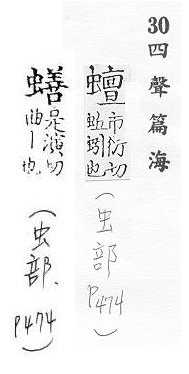 30四聲篇海
蟺市衍切
蚯蚓也
(虫部
P474)
蟮是演切
曲丨也
(虫部.
P474)